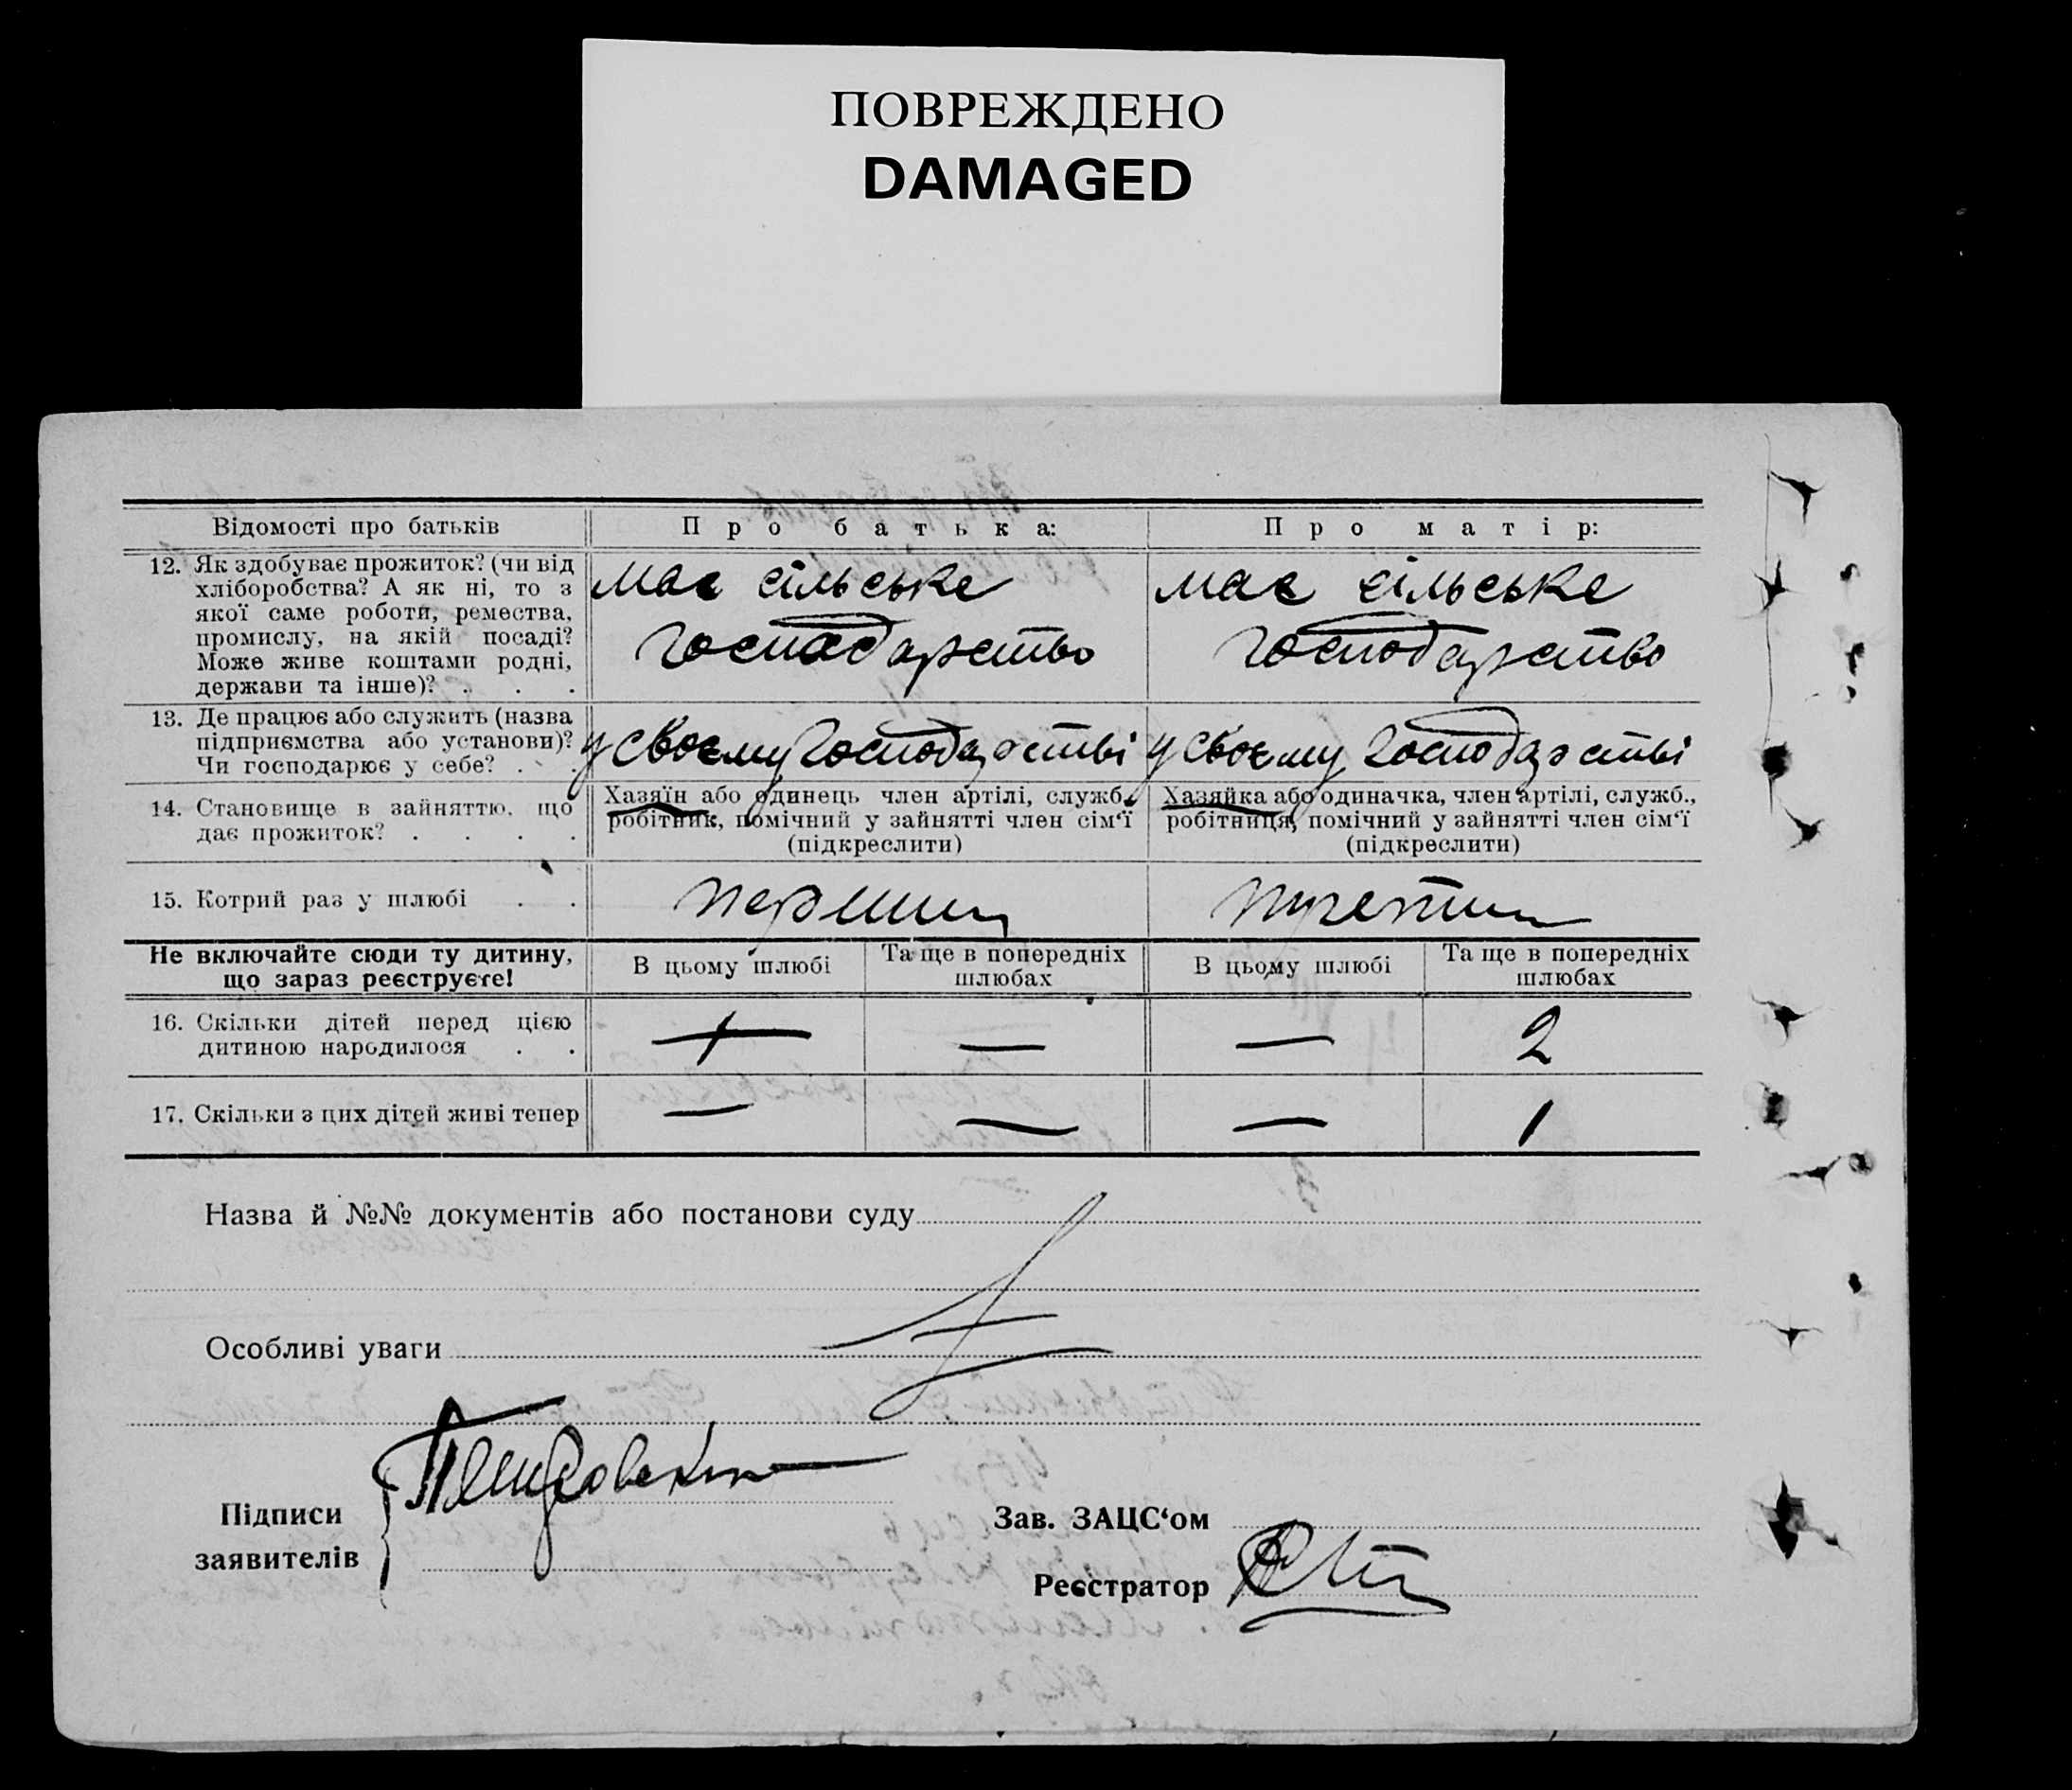 ПОВРЕЖДЕНО
DAMAGED
Відомості про батьків
Про батька:
Про матір:
12. Як здобуває прожиток? (чи від
хліборобства? А як ні, то з
якої саме роботи, ремества,
промислу, на якій посаді?
Може живе коштами родні,
держави та інше)? . . .
має сільське
господарство
має сільське
господарство
13. Де працює або служить (назва
підприємства або установи)?
Чи господарює у себе? . .
у своєму господарстві
у своєму господарстві
14. Становище в зайняттю, що
дає прожиток? . . . .
Хазяїн або одинець член артілі, служб.,
робітник, помічний у зайнятті член сім‘ї
(підкреслити)
Хазяйка або одиначка, член артілі, служб.,
робітниця, помічний у зайнятті член сім‘ї
(підкреслити)
15. Котрий раз у шлюбі . .
перший
Не включайте сюди ту дитину,
що зараз реєструєте!
В цьому шлюбі
Та ще в попередніх
шлюбах
В цьому шлюбі
Та ще в попередніх
шлюбах
16. Скільки дітей перед цією
дитиною народилося . .
— — 2
17. Скільки з цих дітей живі тепер
— — — 1
Назва й №№ документів або постанови суду
Особливі уваги
Підписи
заявителів
Зав. ЗАЦС‘ом
Реєстратор